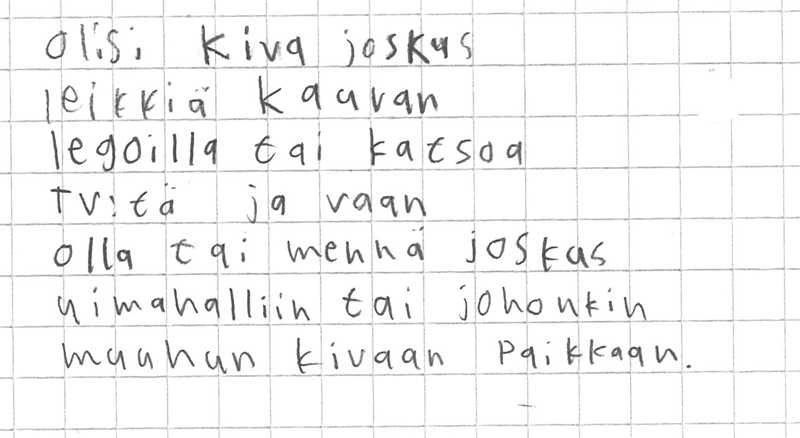 olisi kiva joskus
leikkiä kauvan
legoilla tai katsoa
TV:tä ja vaan
olla tai mennä joskus
uimahalliin tai johonkin
muuhun kivaan paikkaan.